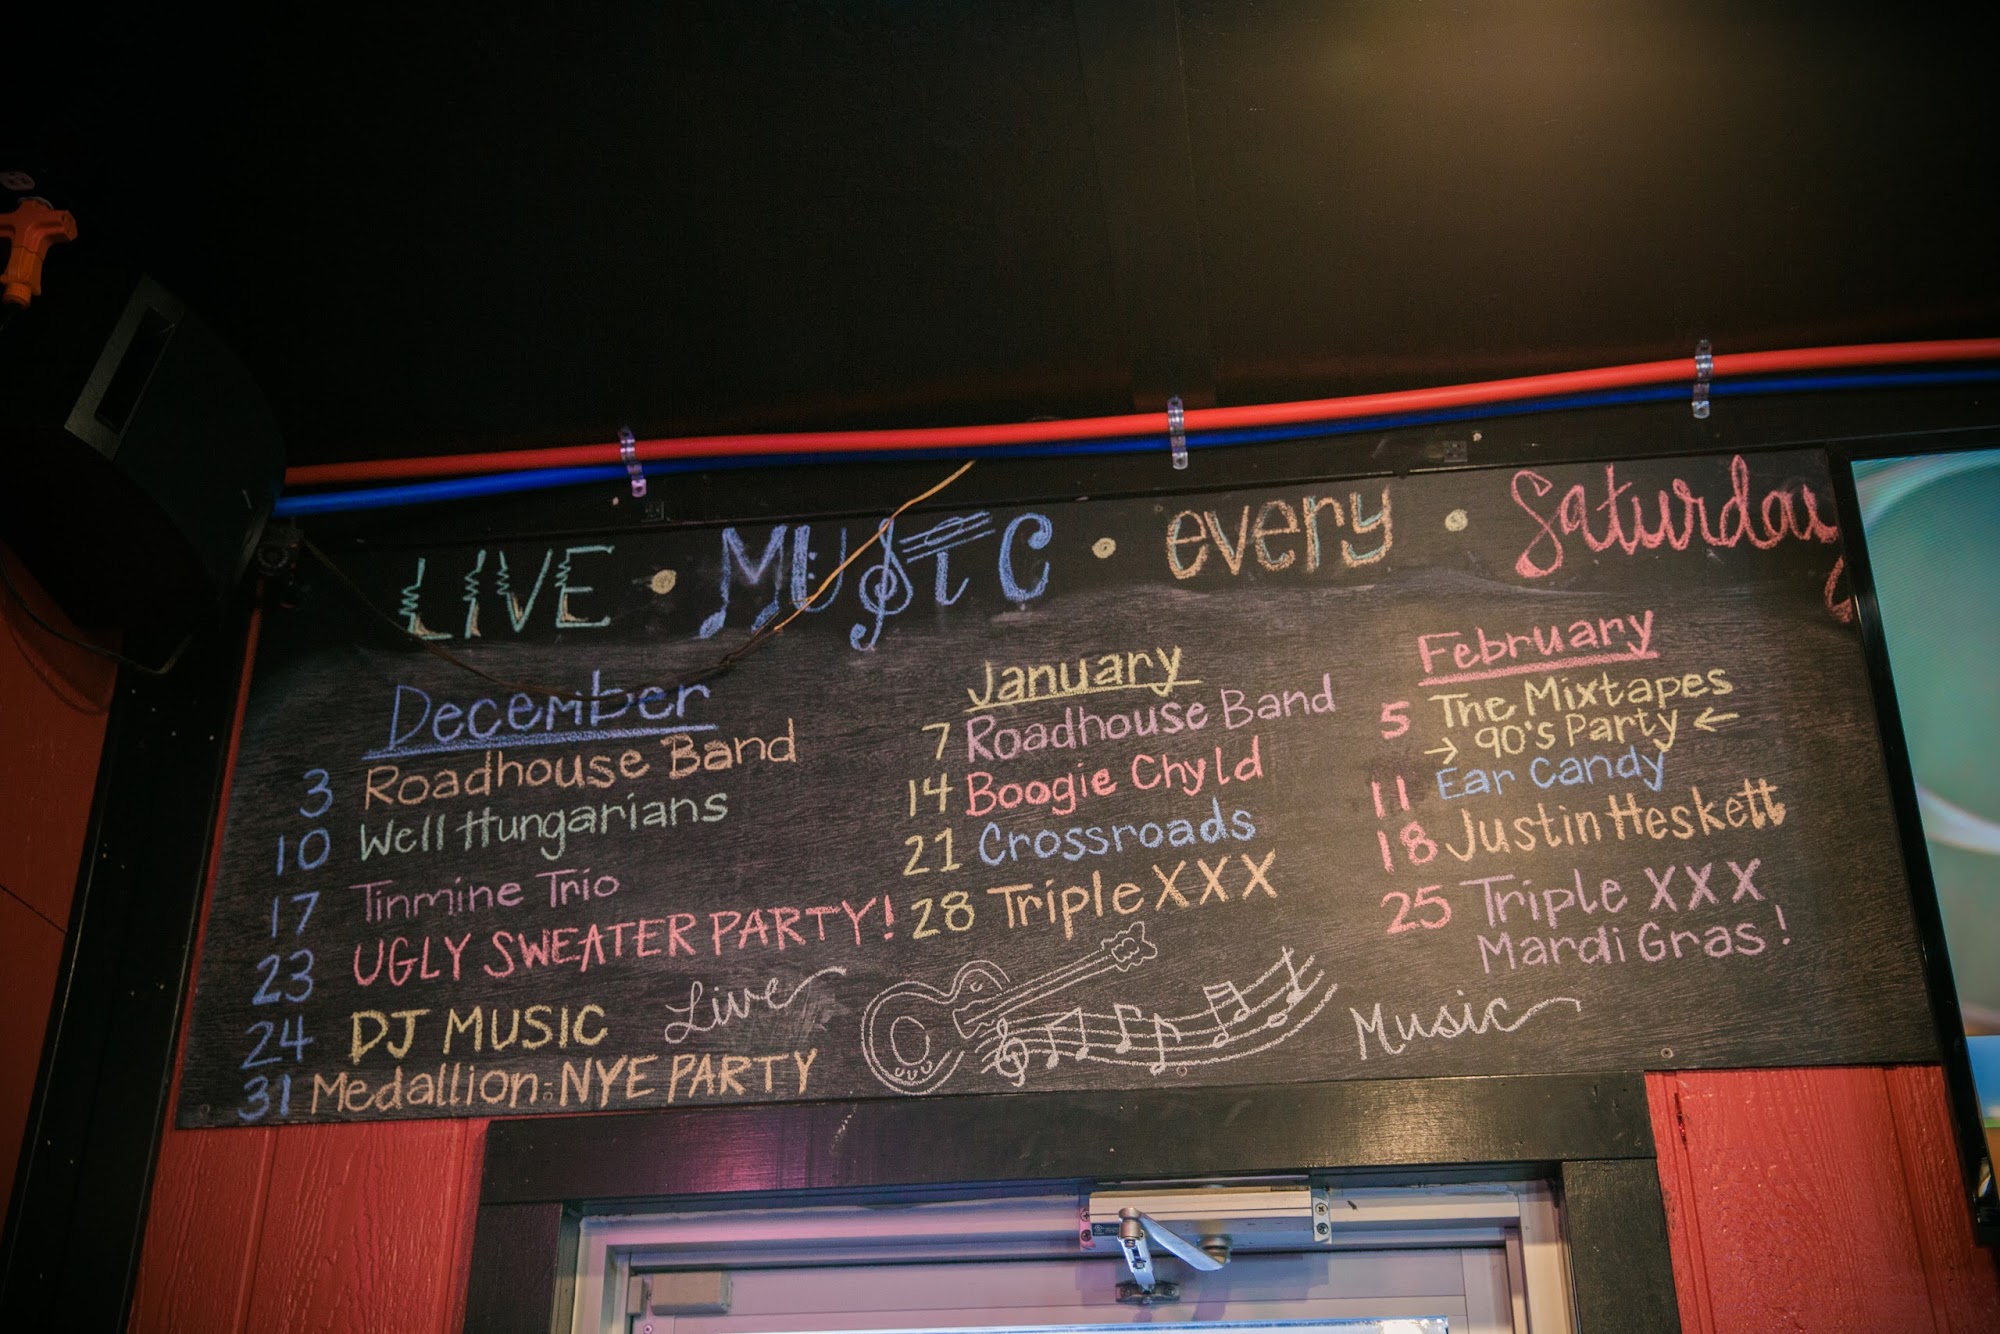 LIVE • MUSIC • every • Saturday
December
3 Roadhouse Band
10 Well Hungarians
17 Tinmine Trio
23 UGLY SWEATER PARTY!
24 DJ MUSIC
31 Medallion: NYE PARTY
January
7 Roadhouse Band
14 Boogie Chyld
21 Crossroads
28 Triple XXX
February
5 The Mixtapes
→ 90's Party ←
11 Ear Candy
18 Justin Heskett
25 Triple XXX
Mardi Gras!
Live Music